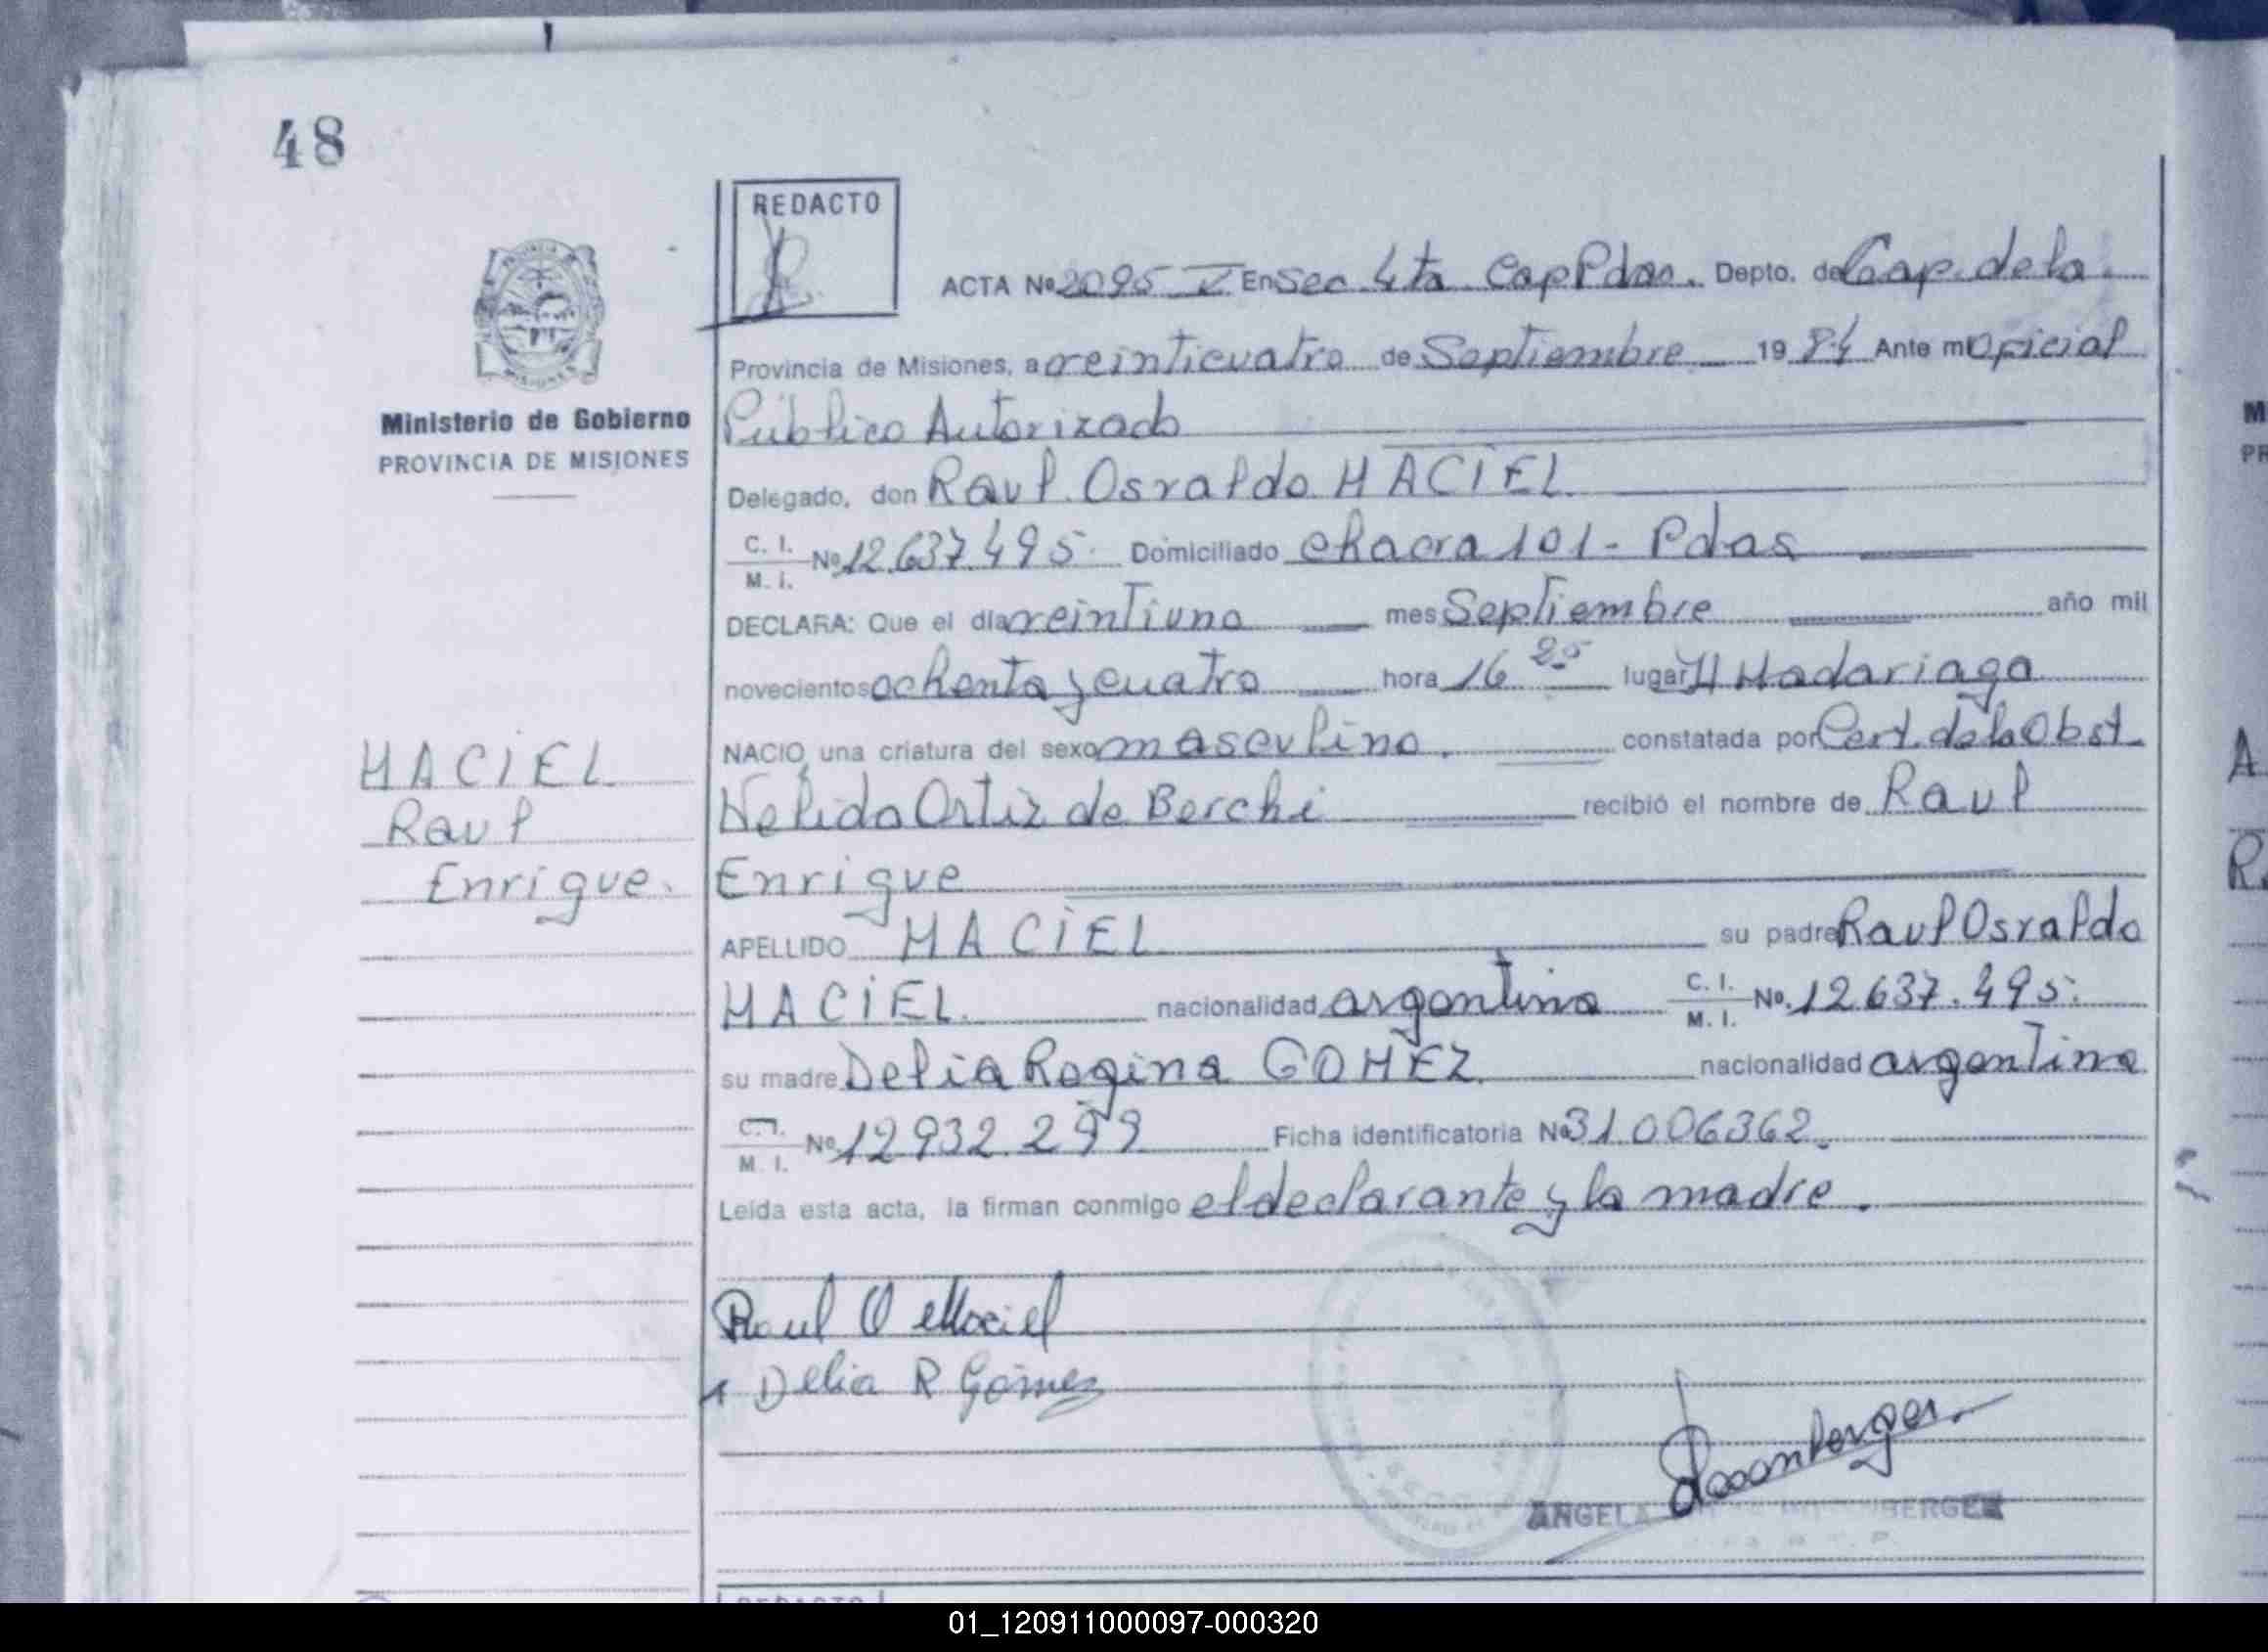 48
REDACTO
ACTA Nº 2095 V En Sec 4ta Cap Pdas. Depto. de Cap. de la
Provincia de Misiones, a veinticuatro de Septiembre 1984 Ante mi Oficial
Público Autorizado
Ministerio de Gobierno
PROVINCIA DE MISIONES
Delegado, don Raul Osvaldo MACIEL
C. I. M. I. Nº 12.637.495. Domiciliado chacra 101 - Pdas
DECLARA: Que el día veintiuno mes Septiembre año mil
novecientos ochenta y cuatro hora 16 25 lugar H Madariaga
NACIO una criatura del sexo masculino. constatada por Cert. de la Obst.
MACIEL
Raul
Enrique.
Nelida Ortiz de Berchi recibió el nombre de Raul
Enrique
APELLIDO MACIEL su padre Raul Osvaldo
MACIEL. nacionalidad argentina C. I. M. I. Nº. 12.637.495.
su madre Delia Regina GOMEZ. nacionalidad argentina
C. I. M. I. Nº 12932.299 Ficha identificatoria Nº 31006362.
Leída esta acta, la firman conmigo el declarante y la madre.
Raul O Maciel
Delia R Gómez
ANGELA
01_120911000097-000320